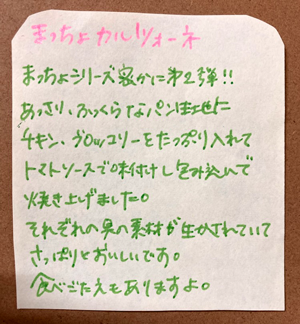 まっちょカルツォーネ
まっちょシリーズ密かに第2弾!!
あっさり、ふっくらなパン生地に
チキン、ブロッコリーをたっぷり入れて
トマトソースで味付けし包み込んで
焼き上げました。
それぞれの具の素材が生かされていて
さっぱりとおいしいです。
食べごたえもありますよ。